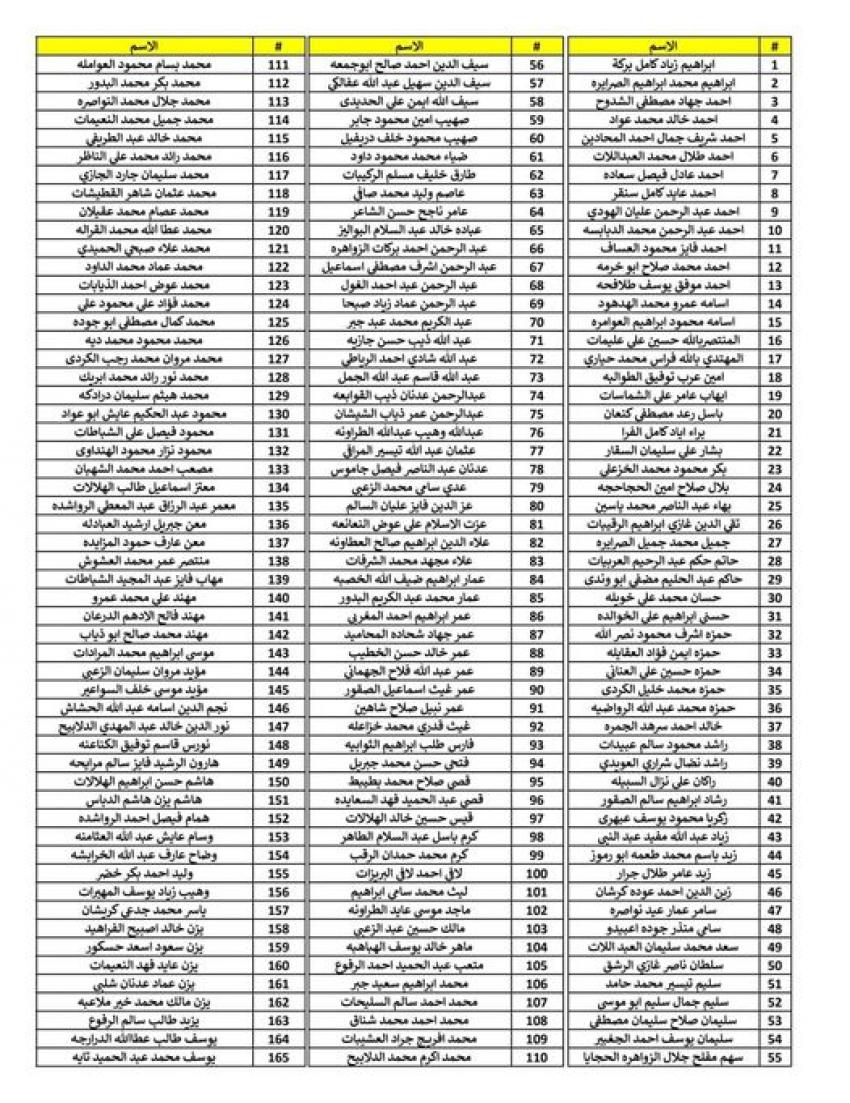 # الاسم
1 ابراهيم زياد كامل بركة
2 ابراهيم محمد ابراهيم الصرايره
3 احمد جهاد مصطفى الشدوح
4 احمد خالد محمد عواد
5 احمد شريف جمال احمد المحادين
6 احمد طلال محمد العبداللات
7 احمد عادل فيصل سعاده
8 احمد عايد كامل سنقر
9 احمد عبد الرحمن عليان الهودي
10 احمد عبد الرحمن محمد الدبابسه
11 احمد فايز محمود العساف
12 احمد محمد صلاح ابو خرمه
13 احمد موفق يوسف طلافحه
14 اسامه عمرو محمد الهدهود
15 اسامه محمود ابراهيم العوامره
16 المنتصربالله حسين علي عليمات
17 المهتدي بالله فراس محمد حياري
18 امين عرب توفيق الطوالبه
19 ايهاب عامر علي الشماسات
20 باسل رعد مصطفى كنعان
21 براء اياد كامل الفرا
22 بشار علي سليمان السقار
23 بكر محمود محمد الخزعلي
24 بلال صلاح امين الحجاحجه
25 بهاء عبد الناصر محمد ياسين
26 تقي الدين غازي ابراهيم الرقيبات
27 جميل محمد جميل الصرايره
28 حاتم حكم عبد الرحيم العربيات
29 حاكم عبد الحليم مضفي ابو وندي
30 حسان محمد علي خويله
31 حسني ابراهيم علي الخوالده
32 حمزه اشرف محمود نصر الله
33 حمزه ايمن فؤاد العقايله
34 حمزه حسين علي العناني
35 حمزه محمد خليل الكردي
36 حمزه محمد عبد الله الرواضيه
37 خالد احمد سرهد الجمره
38 راشد محمود سالم عبيدات
39 راشد نضال شراري العويدي
40 راكان علي نزال السبيله
41 رشاد ابراهيم سالم الصقور
42 زكريا محمود يوسف عبهري
43 زياد عبد الله مفيد عبد النبي
44 زيد باسم محمد طعمه ابو رموز
45 زيد عامر طلال جرار
46 زين الدين احمد عوده كرشان
47 سامر عمار عبد نواصره
48 سامي منذر جوده اعبيدو
49 سعد محمد سليمان العبد اللات
50 سلطان ناصر غازي الرشق
51 سليم تيسير محمد حامد
52 سليم جمال سليم ابو موسى
53 سليمان صلاح سليمان مصطفى
54 سليمان يوسف احمد الجغبير
55 سهم مفلح جلال الزواهره الحجايا
# الاسم
56 سيف الدين احمد صالح ابوجمعه
57 سيف الدين سهيل عبد الله عفالكي
58 سيف الله ايمن علي الحديدي
59 صهيب امين محمود جابر
60 صهيب محمود خلف دريفيل
61 ضياء محمد محمود داود
62 طارق خليف مسلم الركيبات
63 عاصم وليد محمد صافي
64 عامر ناجح حسن الشاعر
65 عباده خالد عبد السلام البواليز
66 عبد الرحمن احمد بركات الزواهره
67 عبد الرحمن اشرف مصطفى اسماعيل
68 عبد الرحمن عبد احمد الغول
69 عبد الرحمن عماد زياد صبحا
70 عبد الكريم محمد عبد جبر
71 عبد الله ذيب حسن جازيه
72 عبد الله شادي احمد الرياطي
73 عبد الله قاسم عبد الله الجمل
74 عبدالرحمن عدنان ذيب القوابعه
75 عبدالرحمن عمر ذياب الشيشان
76 عبدالله وهيب عبدالله الطراونه
77 عثمان عبد الله تيسير المرافي
78 عدنان عبد الناصر فيصل جاموس
79 عدي سامي محمد الزعبي
80 عز الدين فايز عليان السالم
81 عزت الاسلام علي عوض النعانعه
82 علاء الدين ابراهيم صالح العطاونه
83 علاء مجهد محمد الشرفات
84 عمار ابراهيم ضيف الله الخصبه
85 عمار محمد عبد الكريم البدور
86 عمر ابراهيم احمد المغربي
87 عمر جهاد شحاده المحاميد
88 عمر خالد حسن الخطيب
89 عمر عبد الله فلاح الجهماني
90 عمر غيث اسماعيل الصقور
91 عمر نبيل صلاح شاهين
92 غيث قدري محمد خزاعله
93 فارس طلب ابراهيم الثوابيه
94 فتحي حسن محمد جبريل
95 قصي صلاح محمد بطيبط
96 قصي عبد الحميد فهد السعايده
97 قيس حسين خالد الهلالات
98 كرم باسل عبد السلام الطاهر
99 كرم محمد حمدان الرقب
100 لافي احمد لافي البريزات
101 ليث محمد سامي ابراهيم
102 ماجد موسى عايد الطراونه
103 مالك حسين عيد الزعبي
104 ماهر خالد يوسف الهباهبه
105 متعب عبد الحميد احمد الرفوع
106 محمد ابراهيم سعيد جبر
107 محمد احمد سالم السليحات
108 محمد احمد محمد شناق
109 محمد افريج جراد العشيبات
110 محمد اكرم محمد الدلابيح
# الاسم
111 محمد بسام محمود العوامله
112 محمد بكر محمد البدور
113 محمد جلال محمد النواصره
114 محمد جميل محمد النعيمات
115 محمد خالد عبد الطريفي
116 محمد رائد محمد علي الناظر
117 محمد سليمان جارد الجازي
118 محمد عثمان شاهر القطيشات
119 محمد عصام محمد عقيلان
120 محمد عطا الله محمد القراله
121 محمد علاء صبحي الحميدي
122 محمد عماد محمد الداود
123 محمد عوض احمد الذيابات
124 محمد فؤاد علي محمود علي
125 محمد كمال مصطفى ابو جوده
126 محمد محمود محمد ديه
127 محمد مروان محمد رجب الكردي
128 محمد نور رائد محمد ابريك
129 محمد هيثم سليمان درادكه
130 محمود عبد الحكيم عايش ابو عواد
131 محمود فيصل علي الشباطات
132 محمود نزار محمود الهنداوي
133 مصعب احمد محمد الشهبان
134 معتز اسماعيل طالب الهلالات
135 معمر عبد الرزاق عبد المعطي الرواشده
136 معن جبريل ارشيد العبادله
137 معن عارف حمود المزايده
138 منتصر عمر محمد العشوش
139 مهاب فايز عبد المجيد الشباطات
140 مهند علي محمد عمرو
141 مهند فالح الادهم الدرعان
142 مهند محمد صالح ابو ذياب
143 موسى ابراهيم محمد المرادات
144 مؤيد مروان سليمان الزعبي
145 مؤيد موسى خلف السواعير
146 نجم الدين اسامه عبد الله الحشاش
147 نور الدين خالد عبد المهدي الدلابيح
148 نورس قاسم توفيق الكناعنه
149 هارون الرشيد فايز سالم مرايحه
150 هاشم حسن ابراهيم الهلالات
151 هاشم يزن هاشم الدباس
152 همام فيصل احمد الرواشده
153 وسام عايش عبد الله العثامنه
154 وضاح عارف عبد الله الخرابشه
155 وليد احمد بكر خضر
156 وهيب زياد يوسف المهيرات
157 ياسر محمد جدعي كريشان
158 يزن خالد اصبيح الفراهيد
159 يزن سعود اسعد حسكور
160 يزن عايد فهد النعيمات
161 يزن عماد عدنان شلبي
162 يزن مالك محمد خير ملاعبه
163 يزيد طالب سالم الرفوع
164 يوسف طالب عطاالله الدرارجه
165 يوسف محمد عبد الحميد تايه